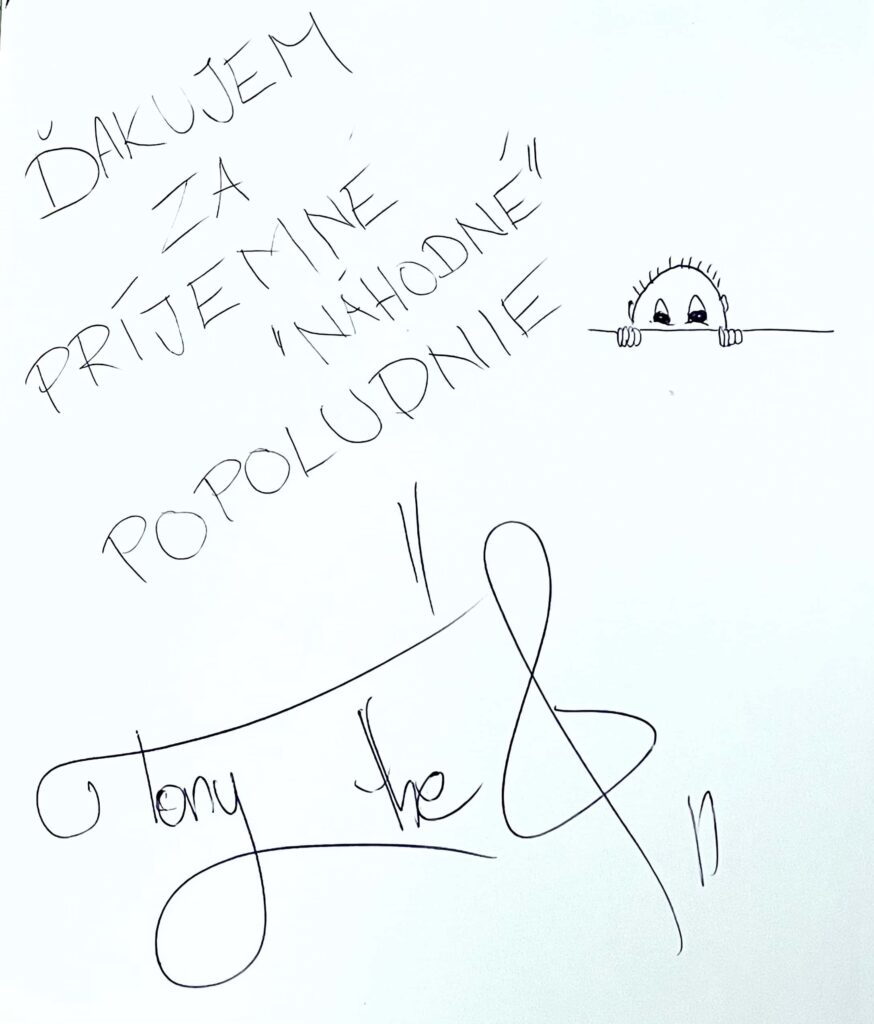 ĎAKUJEM
ZA
PRÍJEMNÉ
"NÁHODNÉ"
POPOLUDNIE
"Tony the &"